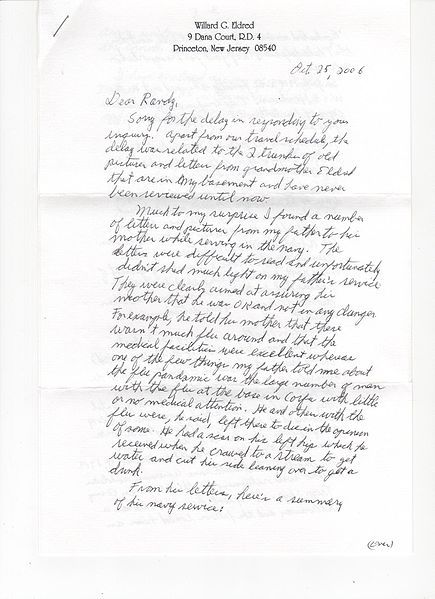 Willard G. Eldred
9 Dana Court, R.D. 4
Princeton, New Jersey 08540
Oct 25, 2006
Dear Randy,
Sorry for the delay in responding to your
inquiry. Apart from our travel schedule, the
delay was related to the 2 trunks of old
pictures and letters from grandmother Eldred
that are in my basement and have never
been reviewed until now.
Much to my surprise I found a number
of letters and pictures from my father to his
mother while serving in the navy. The
letters were difficult to read and unfortunately
didn't shed much light on my father's service.
They were clearly aimed at assuring his
mother that he was OK and not in any danger.
For example, he told his mother that there
wasn't much flu around and that the
medical facilities were excellent whereas
one of the few things my father told me about
the flu pandemic was the large number of men
with the flu at the base in Corfu with little
or no medical attention. He and others with the
flu were, he said, left there to die in the opinion
of some. He had a scar on his left hip which he
received when he crawled to a stream to get
water and cut his side leaning over to get a
drink.
From his letters, here's a summary
of his navy service:
(over)